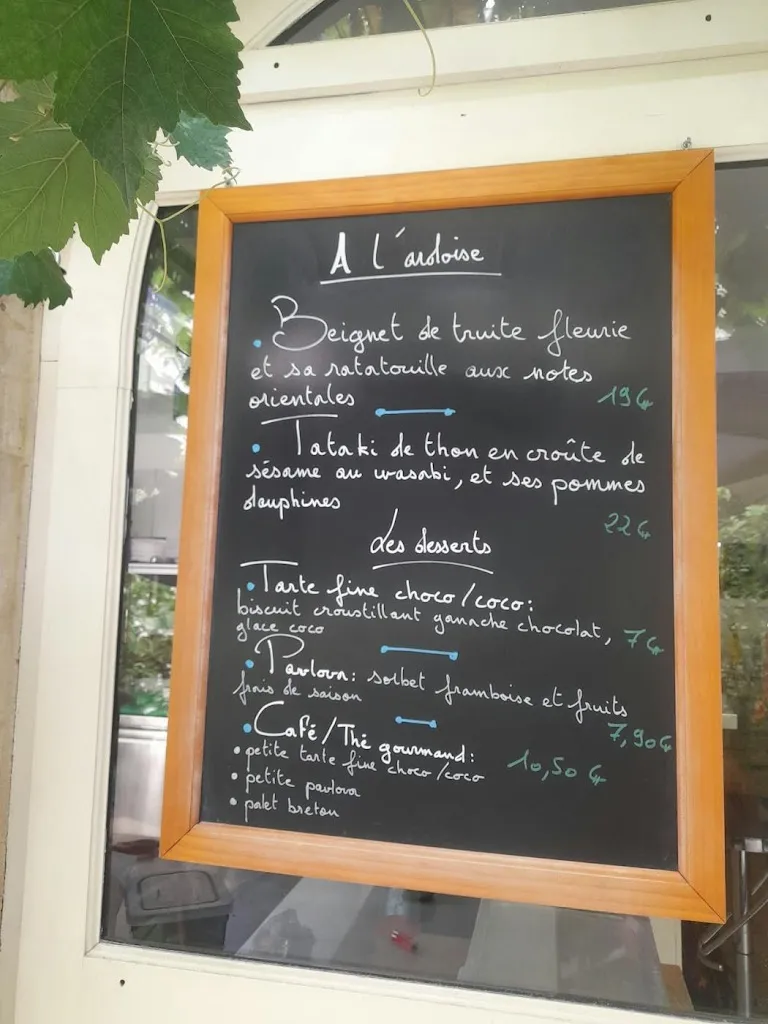 A l'ardoise
• Beignet de truite fleurie
et sa ratatouille aux notes
orientales 19€
• Tataki de thon en croûte de
sésame au wasabi, et ses pommes
dauphines
22€
Les desserts
• Tarte fine choco/coco:
biscuit croustillant ganache chocolat,
glace coco 7€
• Pavlova: sorbet framboise et fruits
frais de saison
7,90€
• Café/Thé gourmand:
10,50€
• petite tarte fine choco/coco
• petite pavlova
• palet breton